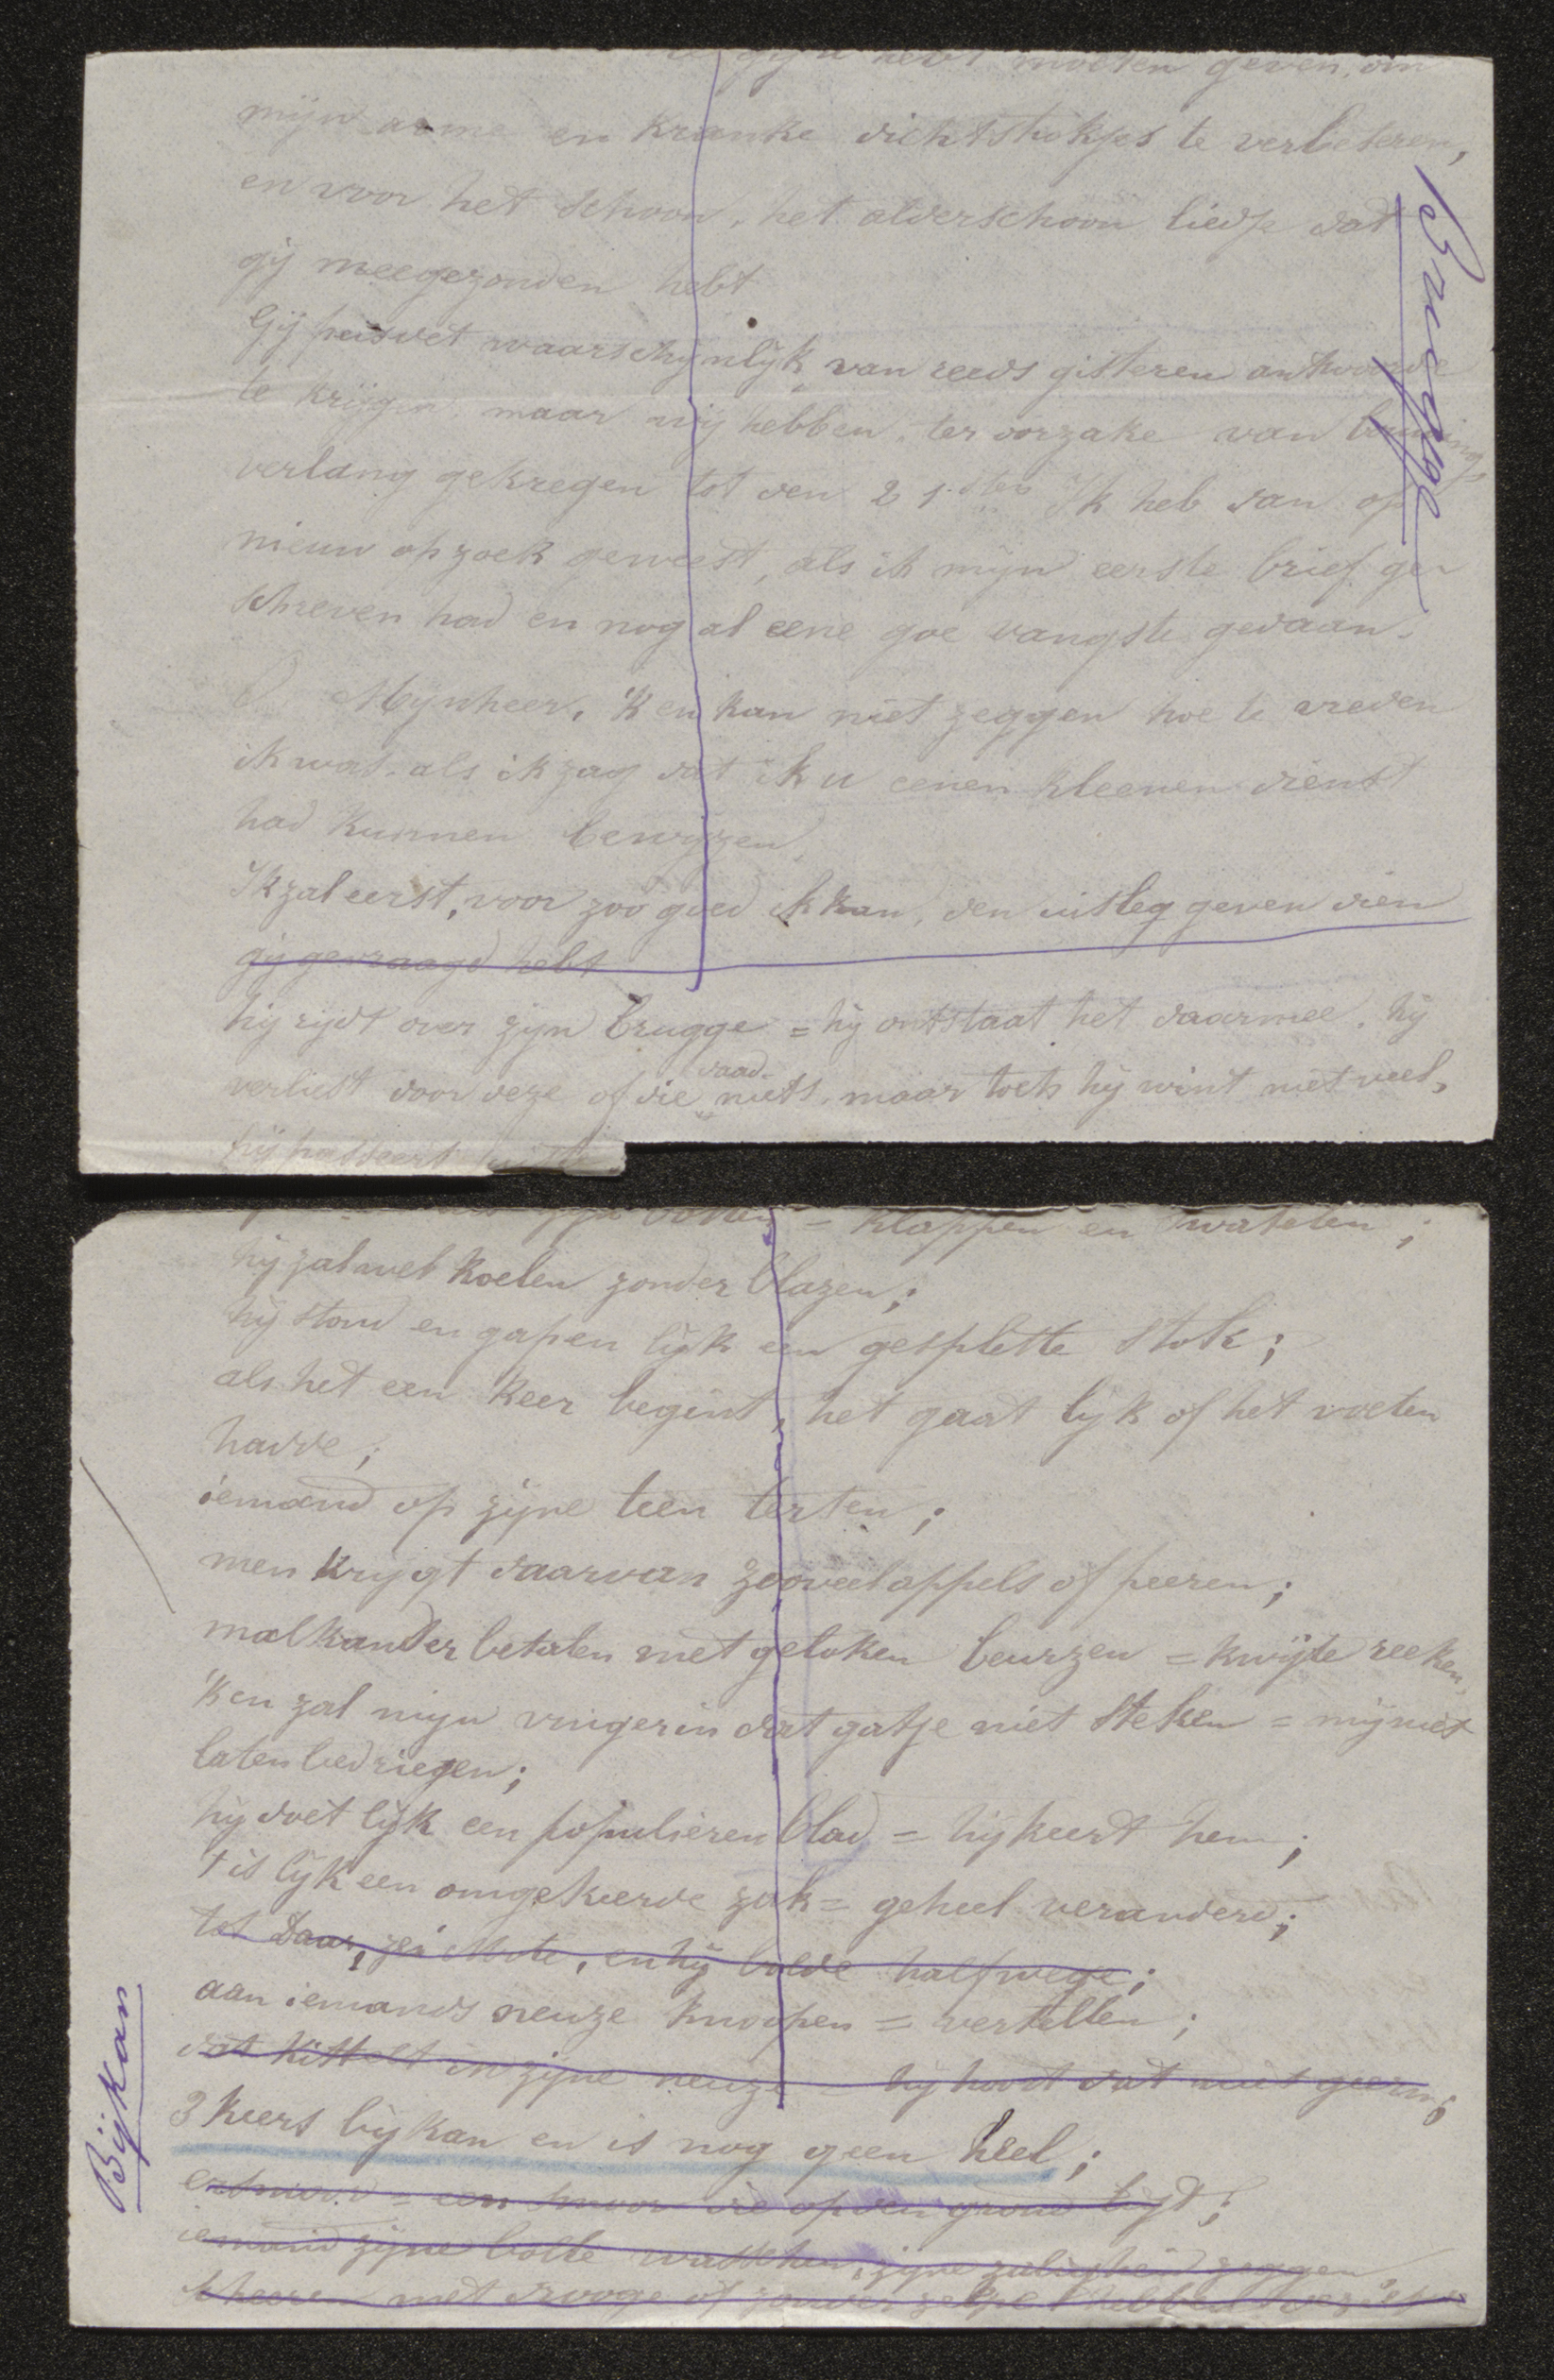 moeten geven, om
mijn arme en kranke dichtstukjes te verbeteren,
en voor het schoon het alderschoon liedje dat
gij meegezonden hebt
Gij peisdet waarschijnlijk van reeds gisteren antwoorde
te krijgen, maar wij hebben, ter oorzake van
verlang gekregen tot den 21sten Ik heb dan op
nieuw op zoek geweest, als ik mijn eerste brief ge-
schreven had en nog al eene goe vangste gedaan.
Mijnheer, 'k en kan niet zeggen hoe te vreden
ik was, als ik zag dat ik u eenen kleenen dienst
had kunnen bewijzen,
Ik zal eerst, voor zoo goed ik kan, den uitleg geven dien
gij gevraagd hebt
hij rijdt over zijn brugge = hij ontstaat het daarmee. hij
verliest door deze of die daad niets, maar toch hij wint niet veel,
hij passeert
Brugge
= klappen en swatelen;
hij zal wel koelen zonder blazen;
hij stond en gapen lijk een gesplette stok;
als het een keer begint, het gaat lijk of het voeten
hadde;
iemand op zijne teen terten;
men krijgt daarvan zooveel appels of peeren;
malkander betalen met geloken beurzen = kwijte reeken,
'k en zal mijn vinger in dat gatje niet steken = mij niet
laten bedriegen;
hij doet lijk een populieren blad = hij keert hem;
't is lijk een omgekeerde zak = geheel veranderd;
tot daar, zei Mote, en hij bolde halfwege;
aan iemands neuze knoopen = vertellen;
dat kittelt in zijne neuze hij hoort dat niet geern;
3 keers bijkan en is nog geen heel;
= een die op den grond ligt;
iemand zijne bolle wasschen, zijne zaligheid zeggen,
scheeren met drooge of zonder zeepe
Bijkan